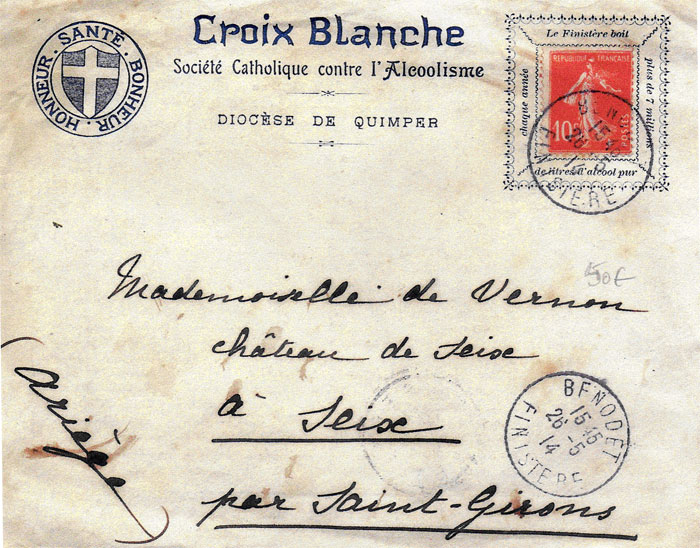 HONNEUR · SANTÉ · BONHEUR ·
Croix Blanche
Société Catholique contre l'Alcoolisme
DIOCÈSE DE QUIMPER
Le Finistère boit
chaque année
plus de 7 millions
de litres d'alcool pur
REPUBLIQUE FRANÇAISE
10c
POSTES
15 45
26 -5
14
FINISTERE
50€
Mademoiselle de Vernon
château de Seix
à Seix
par Saint-Girons
(Ariège)
BENODET
15 45
26 -5
14
FINISTERE